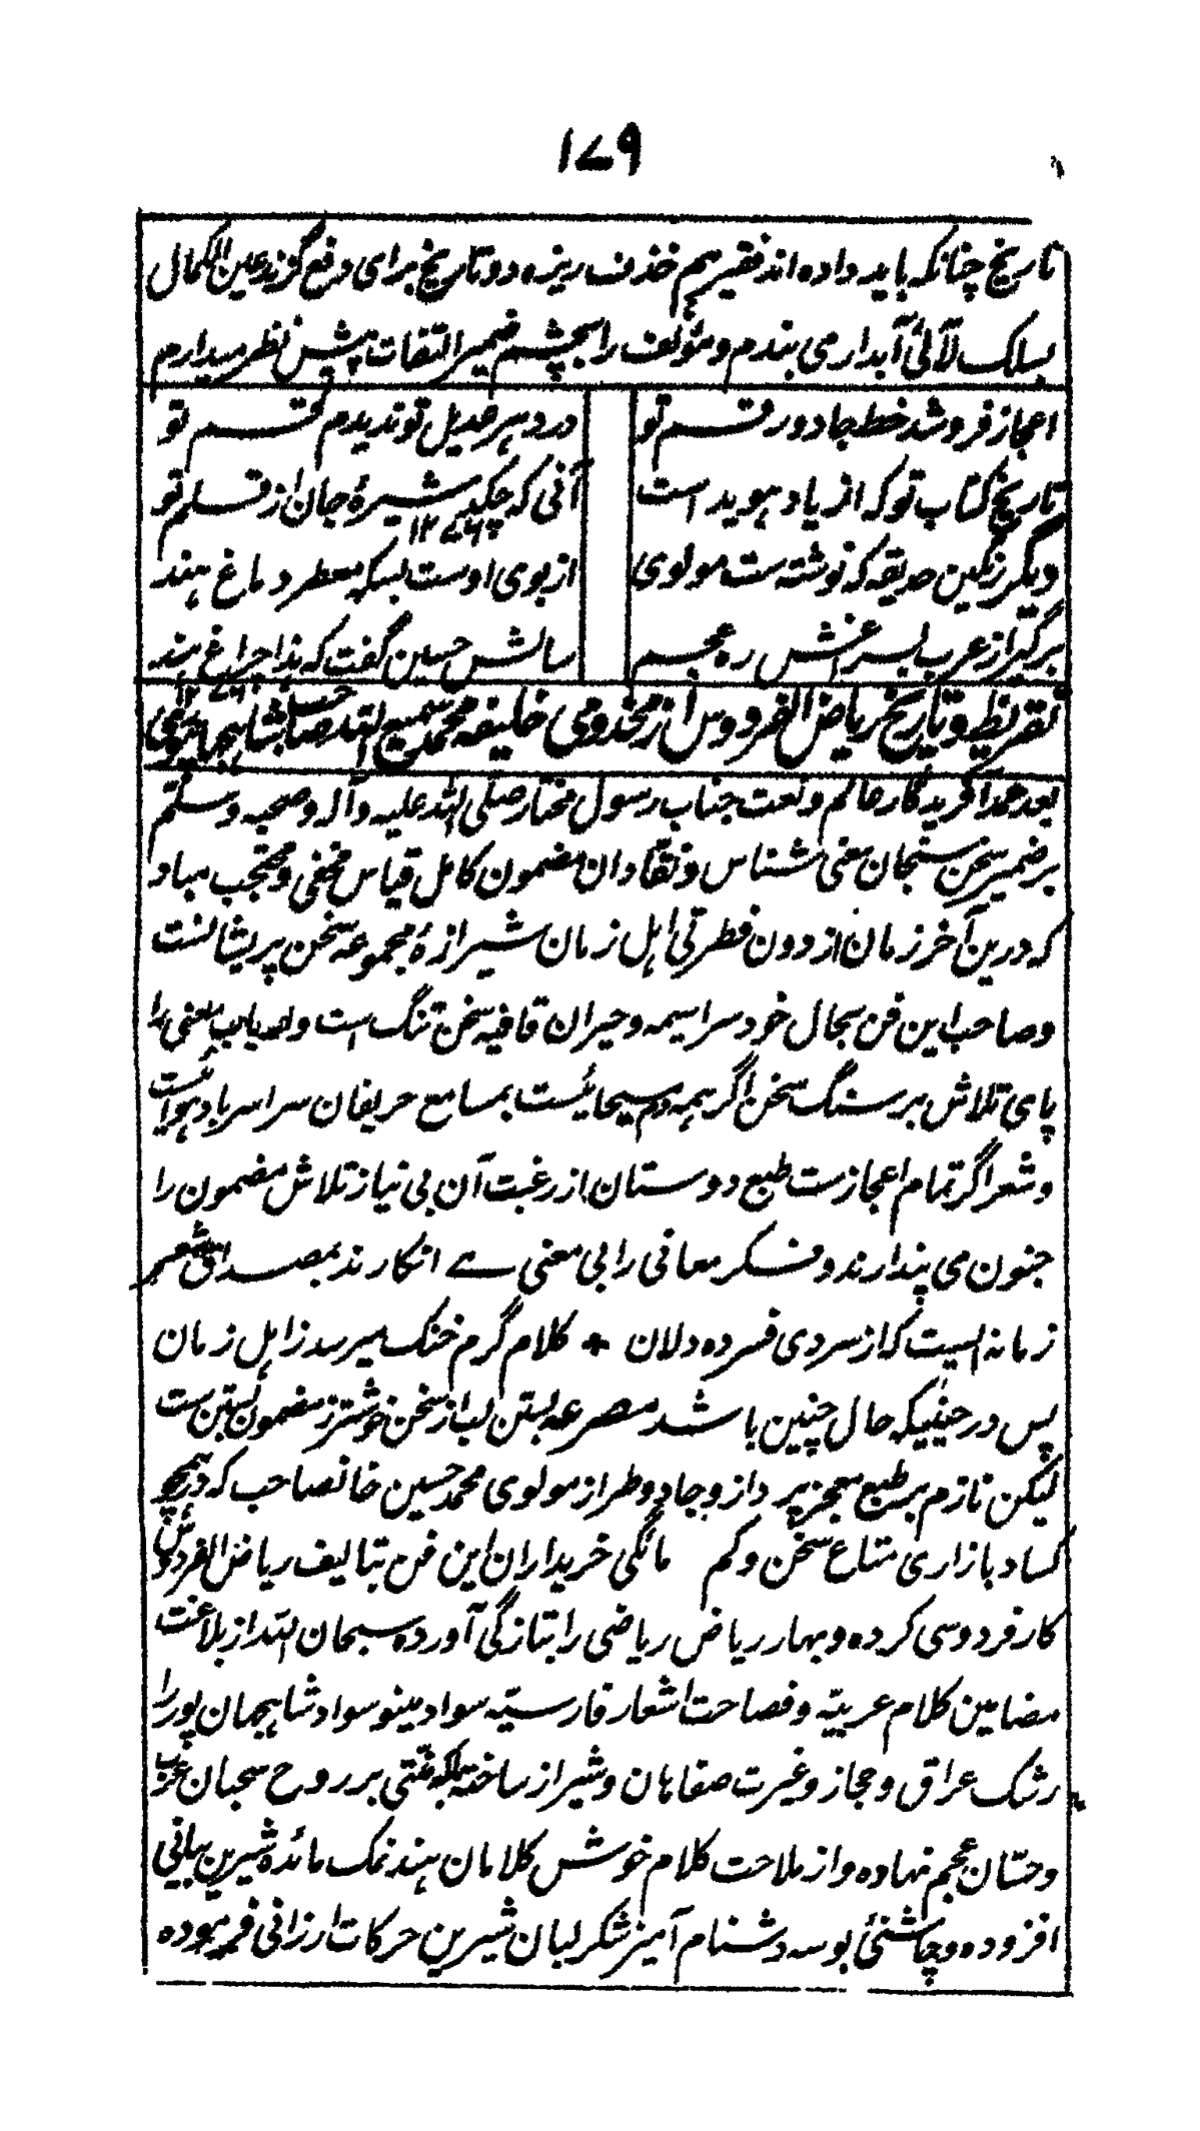 ۱۷۹
تاریخ چنانکه باید داده اند فقیر هم خذف ریزه دو تاریخ برای دفع گزند عین الکمال
بسلک لآلئ آبداری می بندم و مؤلف را بچشم ضمیر التفات پیش نظر میدارم
اعجاز فروشد خط جادو رقم تو
در دهر عدیل تو ندیدم قسم تو
تاریخ کتاب تو که از یاد هوید است
آنی که چکید شیرهٔ جان از قلم تو
۱۲۷۶
دیگر رنگین حدیقه که نوشته ست مولوی
از بوی اوست بسکه معطر دماغ هند
برگیر از عرب بسر اغش ره عجم
سالش حسین گفت که هذا چراغ هند
تقریظ و تاریخ ریاض الفردوس از مخدومی خلیفه محمد سمیع الله صاحب شاهجهانپوری
بعد حمد آفریدگار عالم و نعت جناب رسول مختار صلی الله علیه وآله وصحبه وسلم
بر ضمیر سخن سنجان معنی شناس و نقادان مضمون کامل قیاس مخفی و محتجب مباد
که درین آخر زمان از دون فطرتی اهل زمان شیرازهٔ مجموعه سخن پریشانست
و صاحب این فن بحال خود سراسیمه و حیران قافیه سخن تنگ است و معنی را
پای تلاش بر سنگ سخن اگر همه دم مسیحائیست بمسامع حریفان سراسر باد هوائیست
و شعر اگر تمام اعجازست طبع دوستان از رغبت آن بی نیاز تلاش مضمون را
جنون می پندارند و فکر معانی را بی معنی مے انکارند بمصداق شعر
زمانه ایست که از سردی فسرده دلان * کلام گرم خنک میرسد ز اهل زمان
پس در حینیکه حال چنین باشد مصرعه بستن لب از سخن خوشتر ز مضمون بستن ست
لیکن نازم بر طبع معجز پرداز و جادو طراز مولوی محمد حسین خانصاحب که در همچو
کساد بازاری متاع سخن و کم مانگی خریداران این فن بتالیف ریاض الفردوس
کار فردوسی کرده و بهار ریاض ریاضی را بتازگی آورده سبحان الله از بلاغت
مضامین کلام عربیّه و فصاحت اشعار فارسیّه سواد مینو سواد شاهجهان پور را
رشک عراق و حجاز و غیرت صفاهان و شیراز ساخته بلکه منّتی بر روح سحبان عرب
و حسّان عجم نهاده و از ملاحت کلام خوش کلامان هند نمک مائدهٔ شیرین بیانی
افزوده و چاشنئ بوسه دشنام آمیز شکر لبان شیرین حرکات ارزانی فرموده